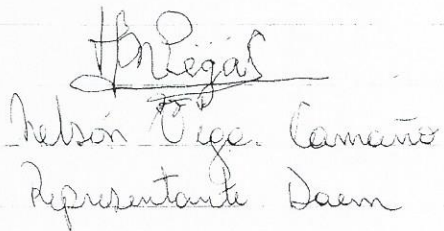 Nelsón Vega. Camaño
Representante Daem